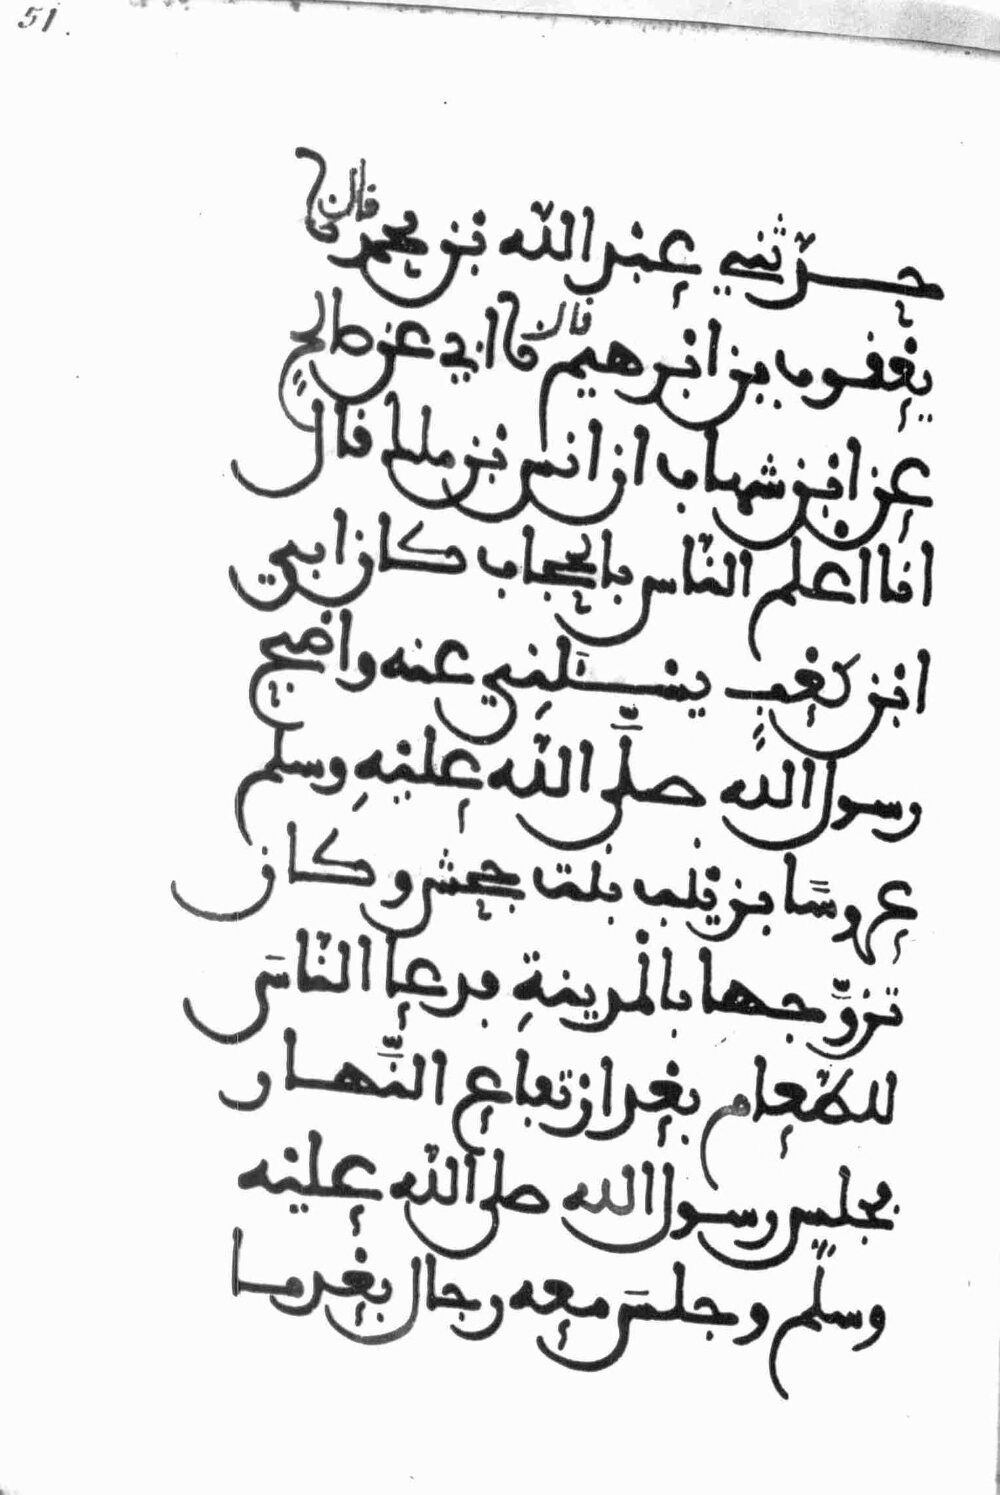 51.
حدثني عبد الله بن محمد قال نا
يعقوب بن ابرهيم قال نا ابي عن صالح
عن ابن شهاب ان انس بن ملك قال
انا اعلم الناس بالحجاب كان ابي
ابن كعب يسئلني عنه واصبح
رسول الله صلى الله عليه وسلم
عروسا بزينب بنت جحش وكان
تزوجها بالمدينة فدعا الناس
للطعام بعد ارتفاع النهار
فجلس رسول الله صلى الله عليه
وسلم وجلس معه رجال بعد ما